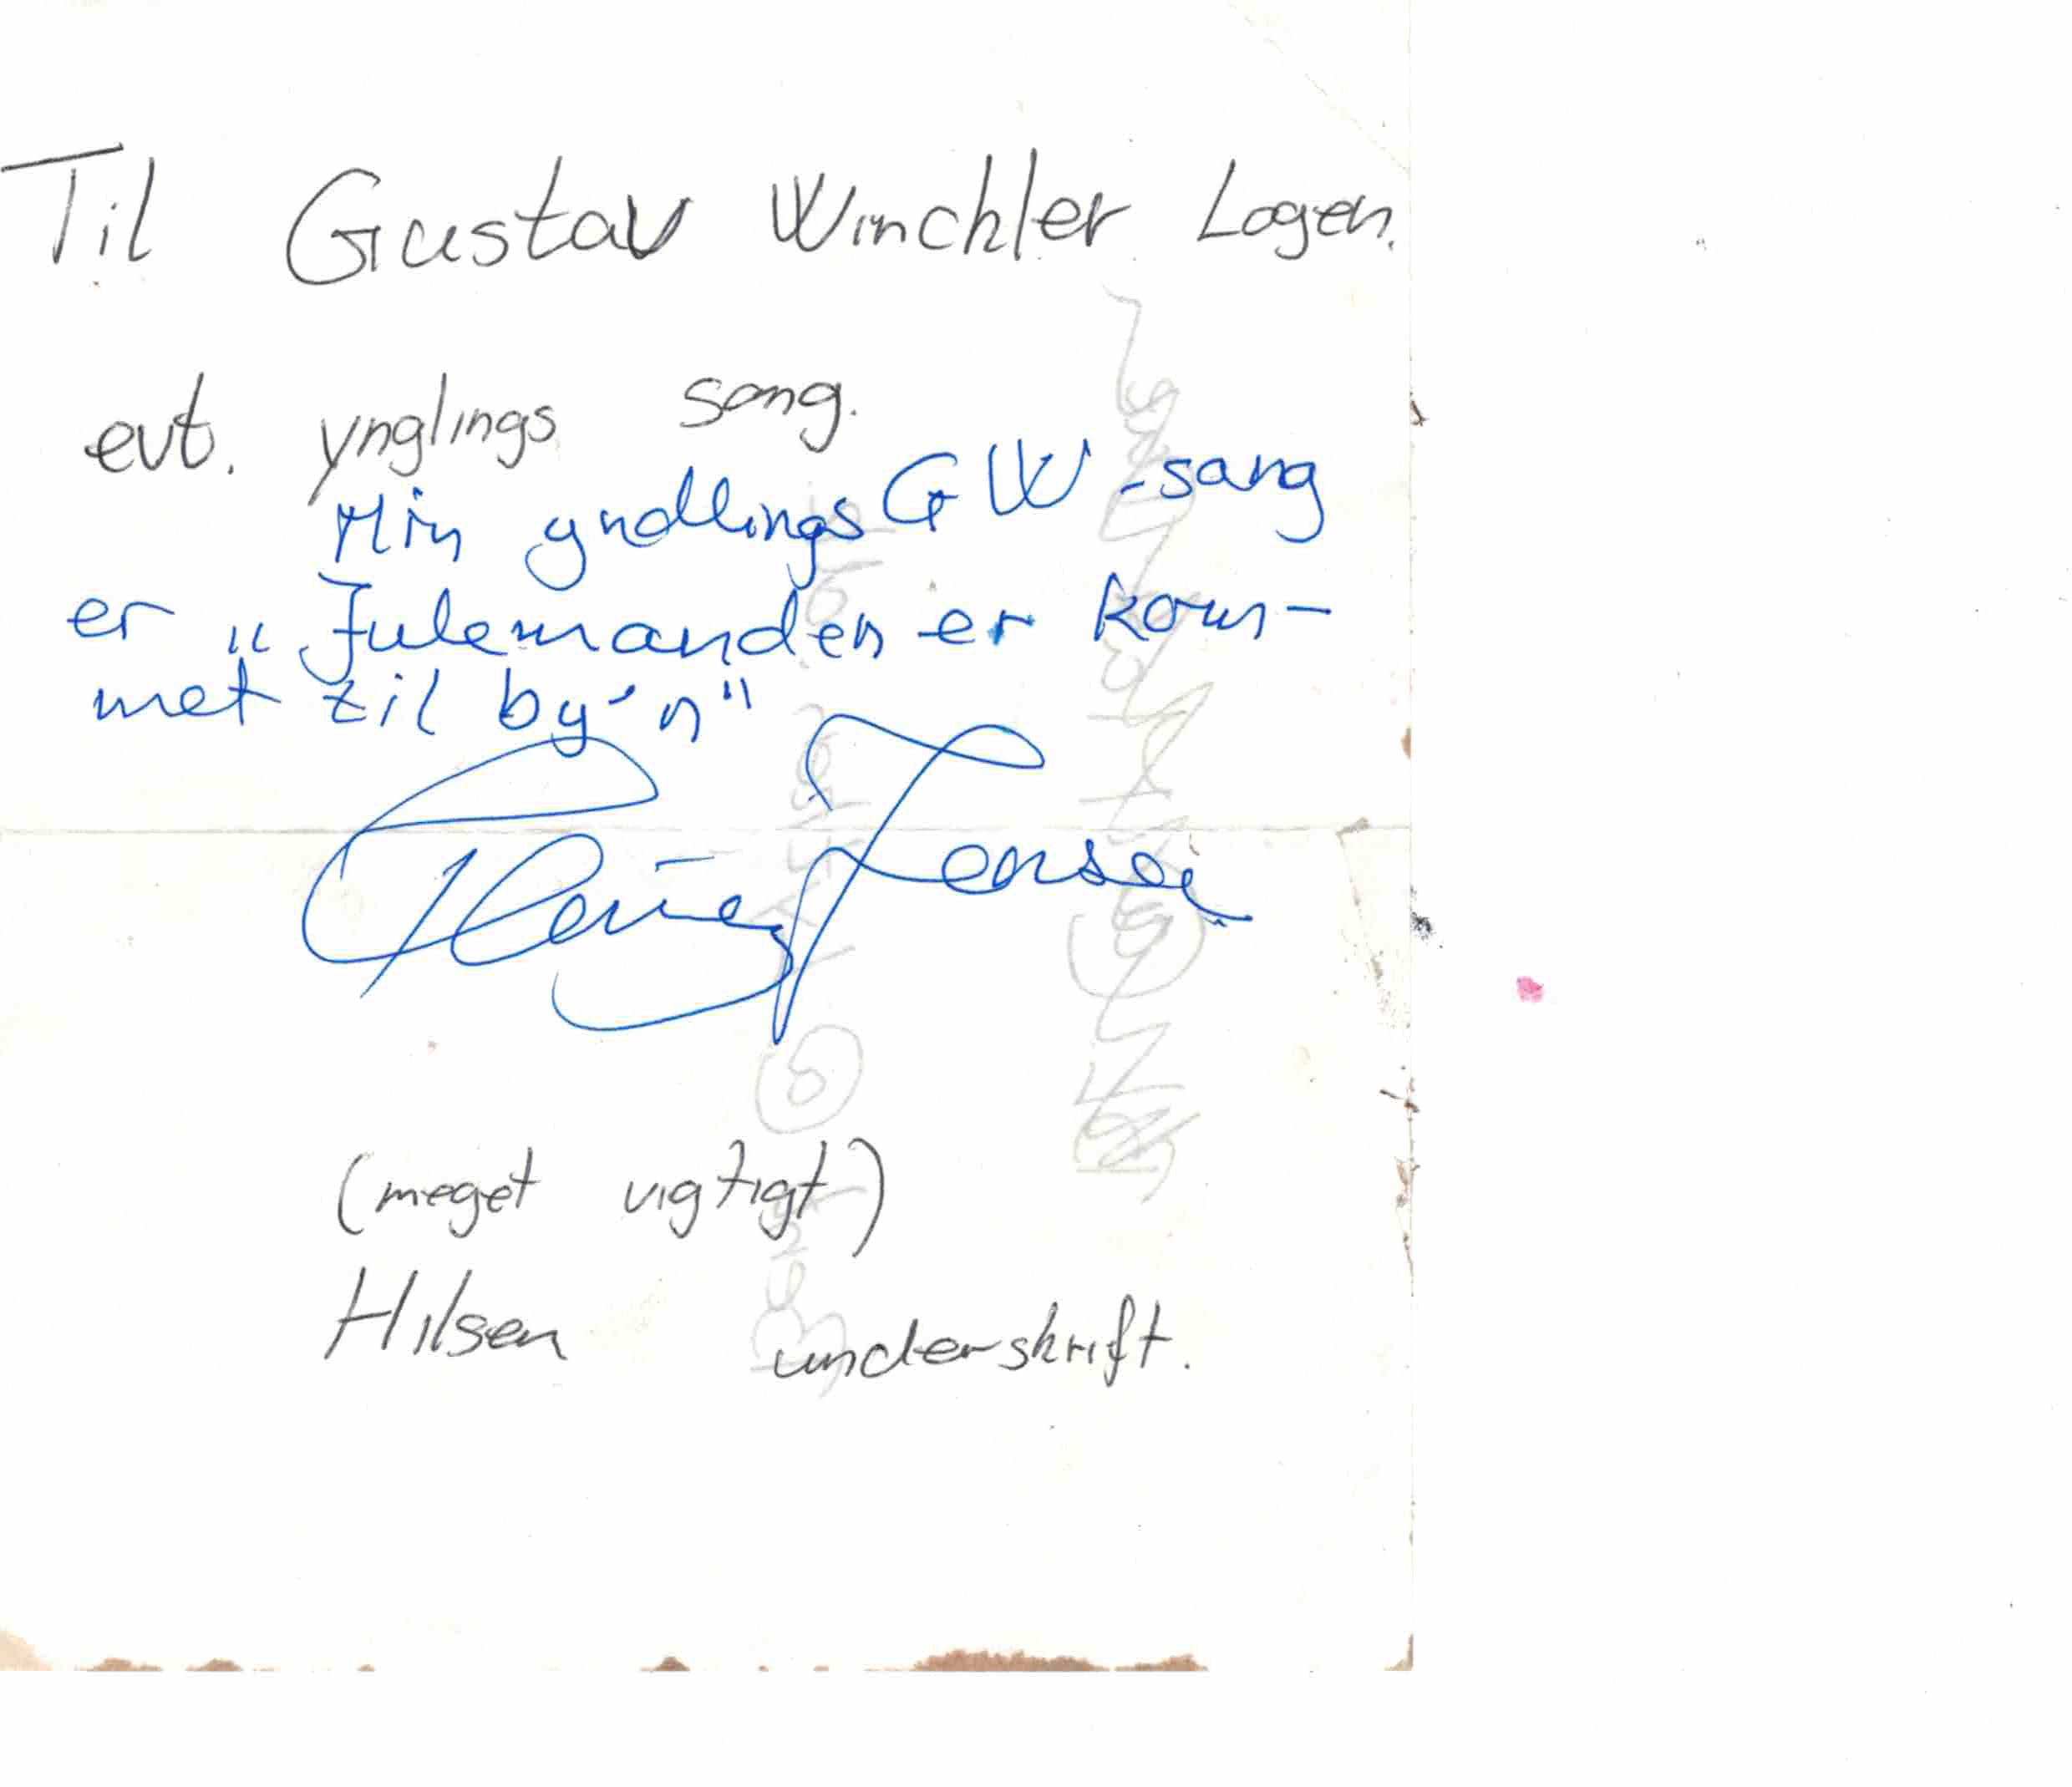 Til Gustav Winchler Logen.
evt. ynglings sang.
Min yndlings GW-sang
er „Julemanden er kom-
met til by'n"
Jensen
(meget vigtigt)
Hilsen underskrift.